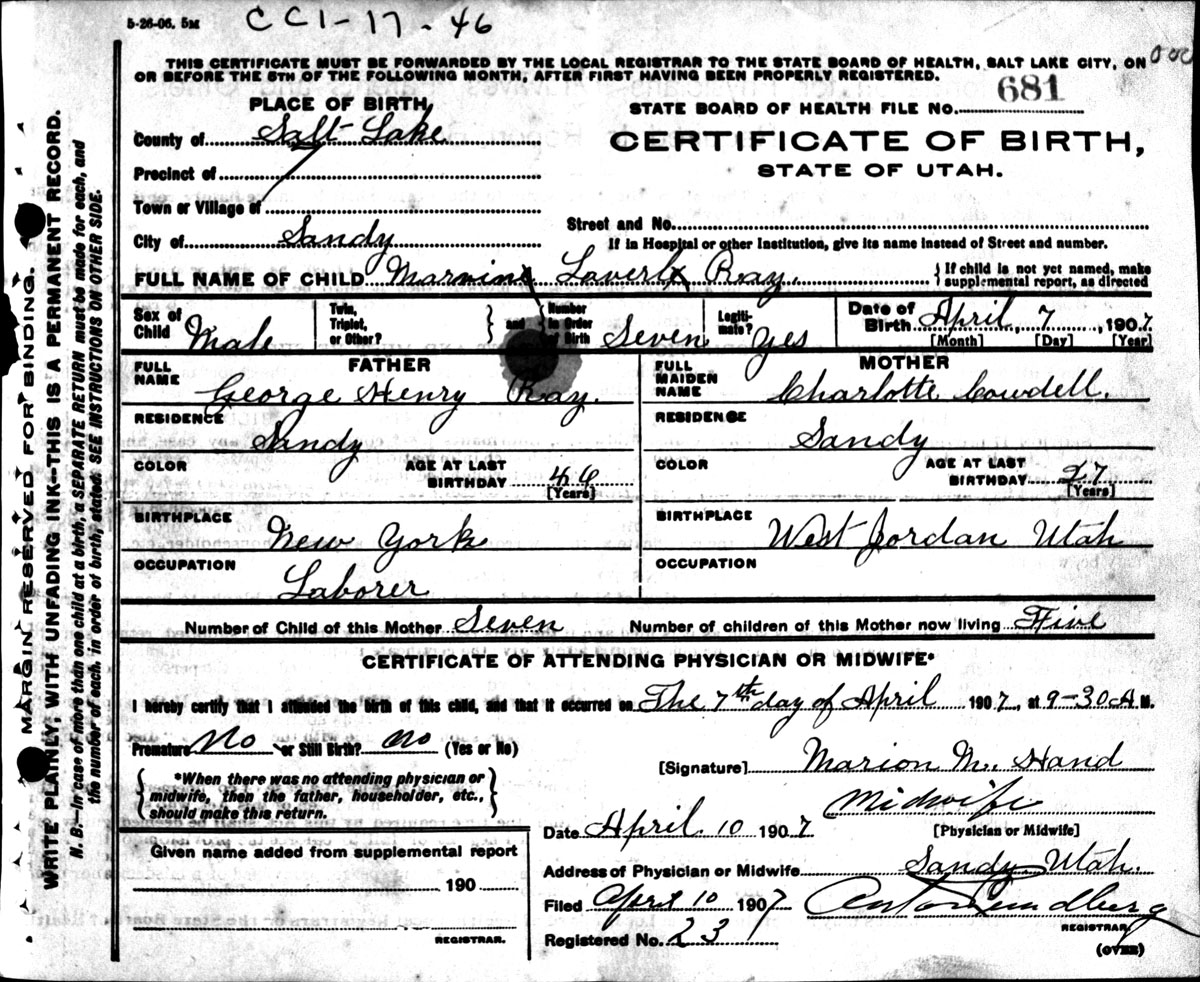 5-26-06. 5M CC1-17-46
THIS CERTIFICATE MUST BE FORWARDED BY THE LOCAL REGISTRAR TO THE STATE BOARD OF HEALTH, SALT LAKE CITY, ON
OR BEFORE THE 5TH OF THE FOLLOWING MONTH, AFTER FIRST HAVING BEEN PROPERLY REGISTERED.
PLACE OF BIRTH
STATE BOARD OF HEALTH FILE NO. 681
County of Salt Lake
CERTIFICATE OF BIRTH,
STATE OF UTAH.
Precinct of
Town or Village of
Street and No.
City of Sandy
If in Hospital or other Institution, give its name instead of Street and number.
FULL NAME OF CHILD Marvin Laverl Ray. } If child is not yet named, make
supplemental report, as directed
Sex of Child Male
Twin, Triplet, or Other? } and { Number in Order of Birth Seven
Legitimate? Yes
Date of Birth April, 7, 1907
[Month] [Day] [Year]
FATHER
FULL NAME George Henry Ray.
RESIDENCE Sandy
COLOR AGE AT LAST BIRTHDAY 46
[Years]
BIRTHPLACE New York
OCCUPATION Laborer
MOTHER
FULL MAIDEN NAME Charlotte Cowdell.
RESIDENCE Sandy
COLOR AGE AT LAST BIRTHDAY 27
[Years]
BIRTHPLACE West Jordan Utah
OCCUPATION
Number of Child of this Mother Seven Number of children of this Mother now living Five
CERTIFICATE OF ATTENDING PHYSICIAN OR MIDWIFE*
I hereby certify that I attended the birth of this child, and that it occurred on The 7th day of April 1907, at 9-30 A M.
Premature No or Still Birth? no (Yes or No)
*When there was no attending physician or
midwife, then the father, householder, etc.,
should make this return.
[Signature] Marion M. Hand
Midwife
[Physician or Midwife]
Date April 10 1907
Address of Physician or Midwife Sandy Utah.
Filed April 10 1907 Anton Lundberg
REGISTRAR.
Registered No. 23
(OVER)
Given name added from supplemental report
190
REGISTRAR.
MARGIN RESERVED FOR BINDING.
WRITE PLAINLY, WITH UNFADING INK—THIS IS A PERMANENT RECORD.
N. B.—In case of more than one child at a birth, a SEPARATE RETURN must be made for each, and
the number of each, in order of birth, stated. SEE INSTRUCTIONS ON OTHER SIDE.